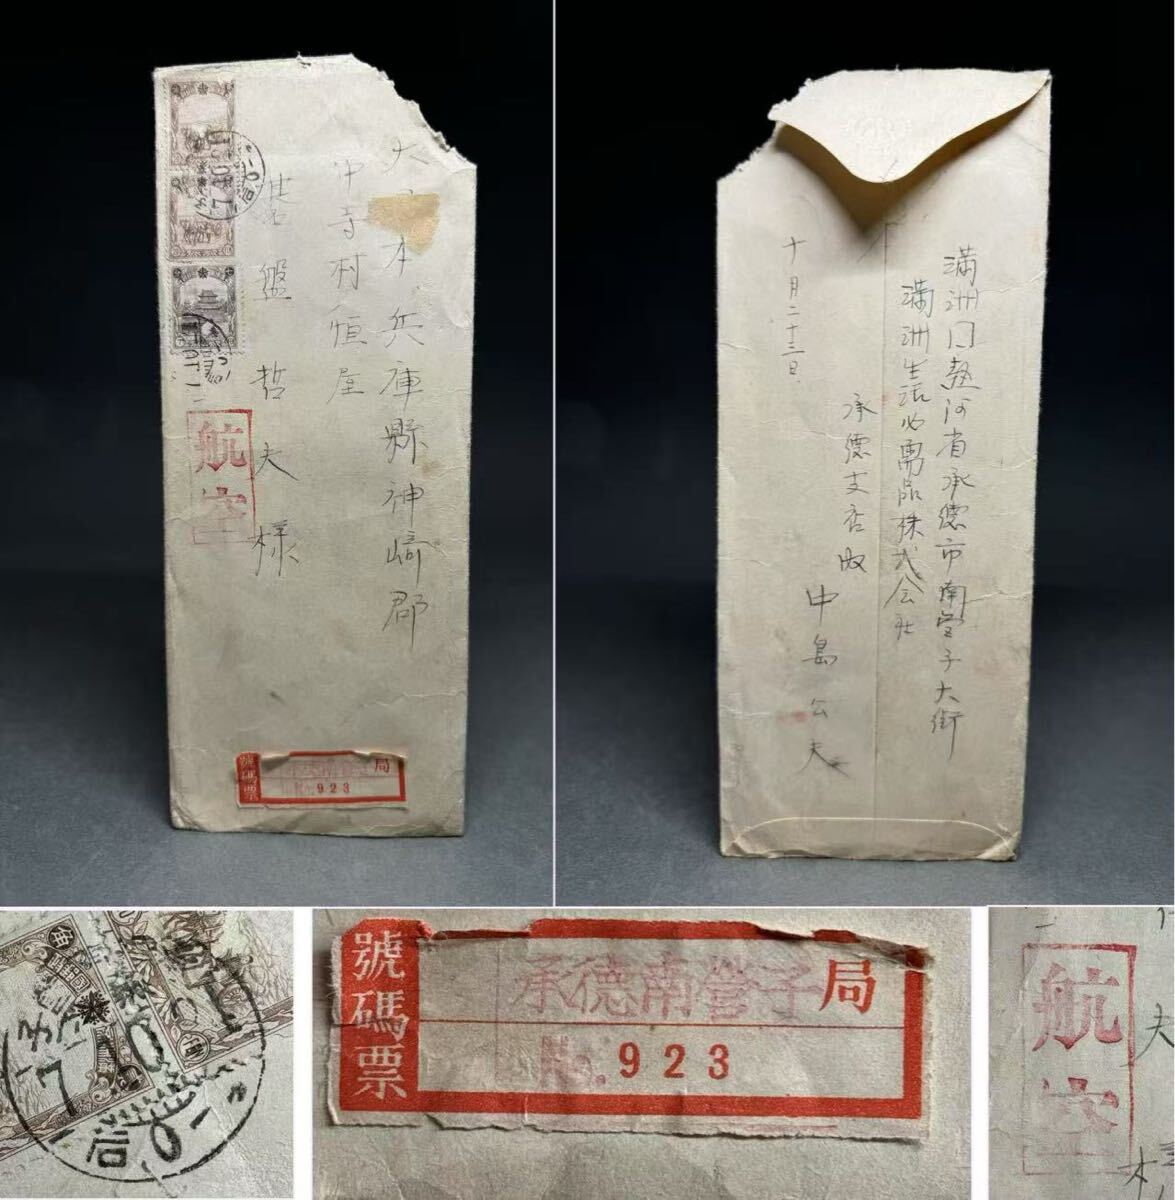 本兵庫縣神崎郡
中寺村恒屋
盤哲夫様
航空
號碼票
承德南營子局
No.923
満洲国熱河省承徳市南営子大街
満洲生活必需品株式会社
承徳支店
中島公夫
十月二十三日
號碼票
承德南營子局
No.923
航空
夫